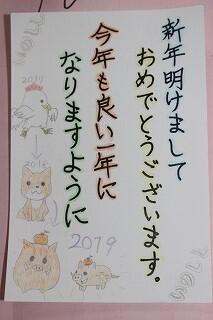 新年明けまして
おめでとうございます。
今年も良い一年に
なりますように
2017
2018
2019